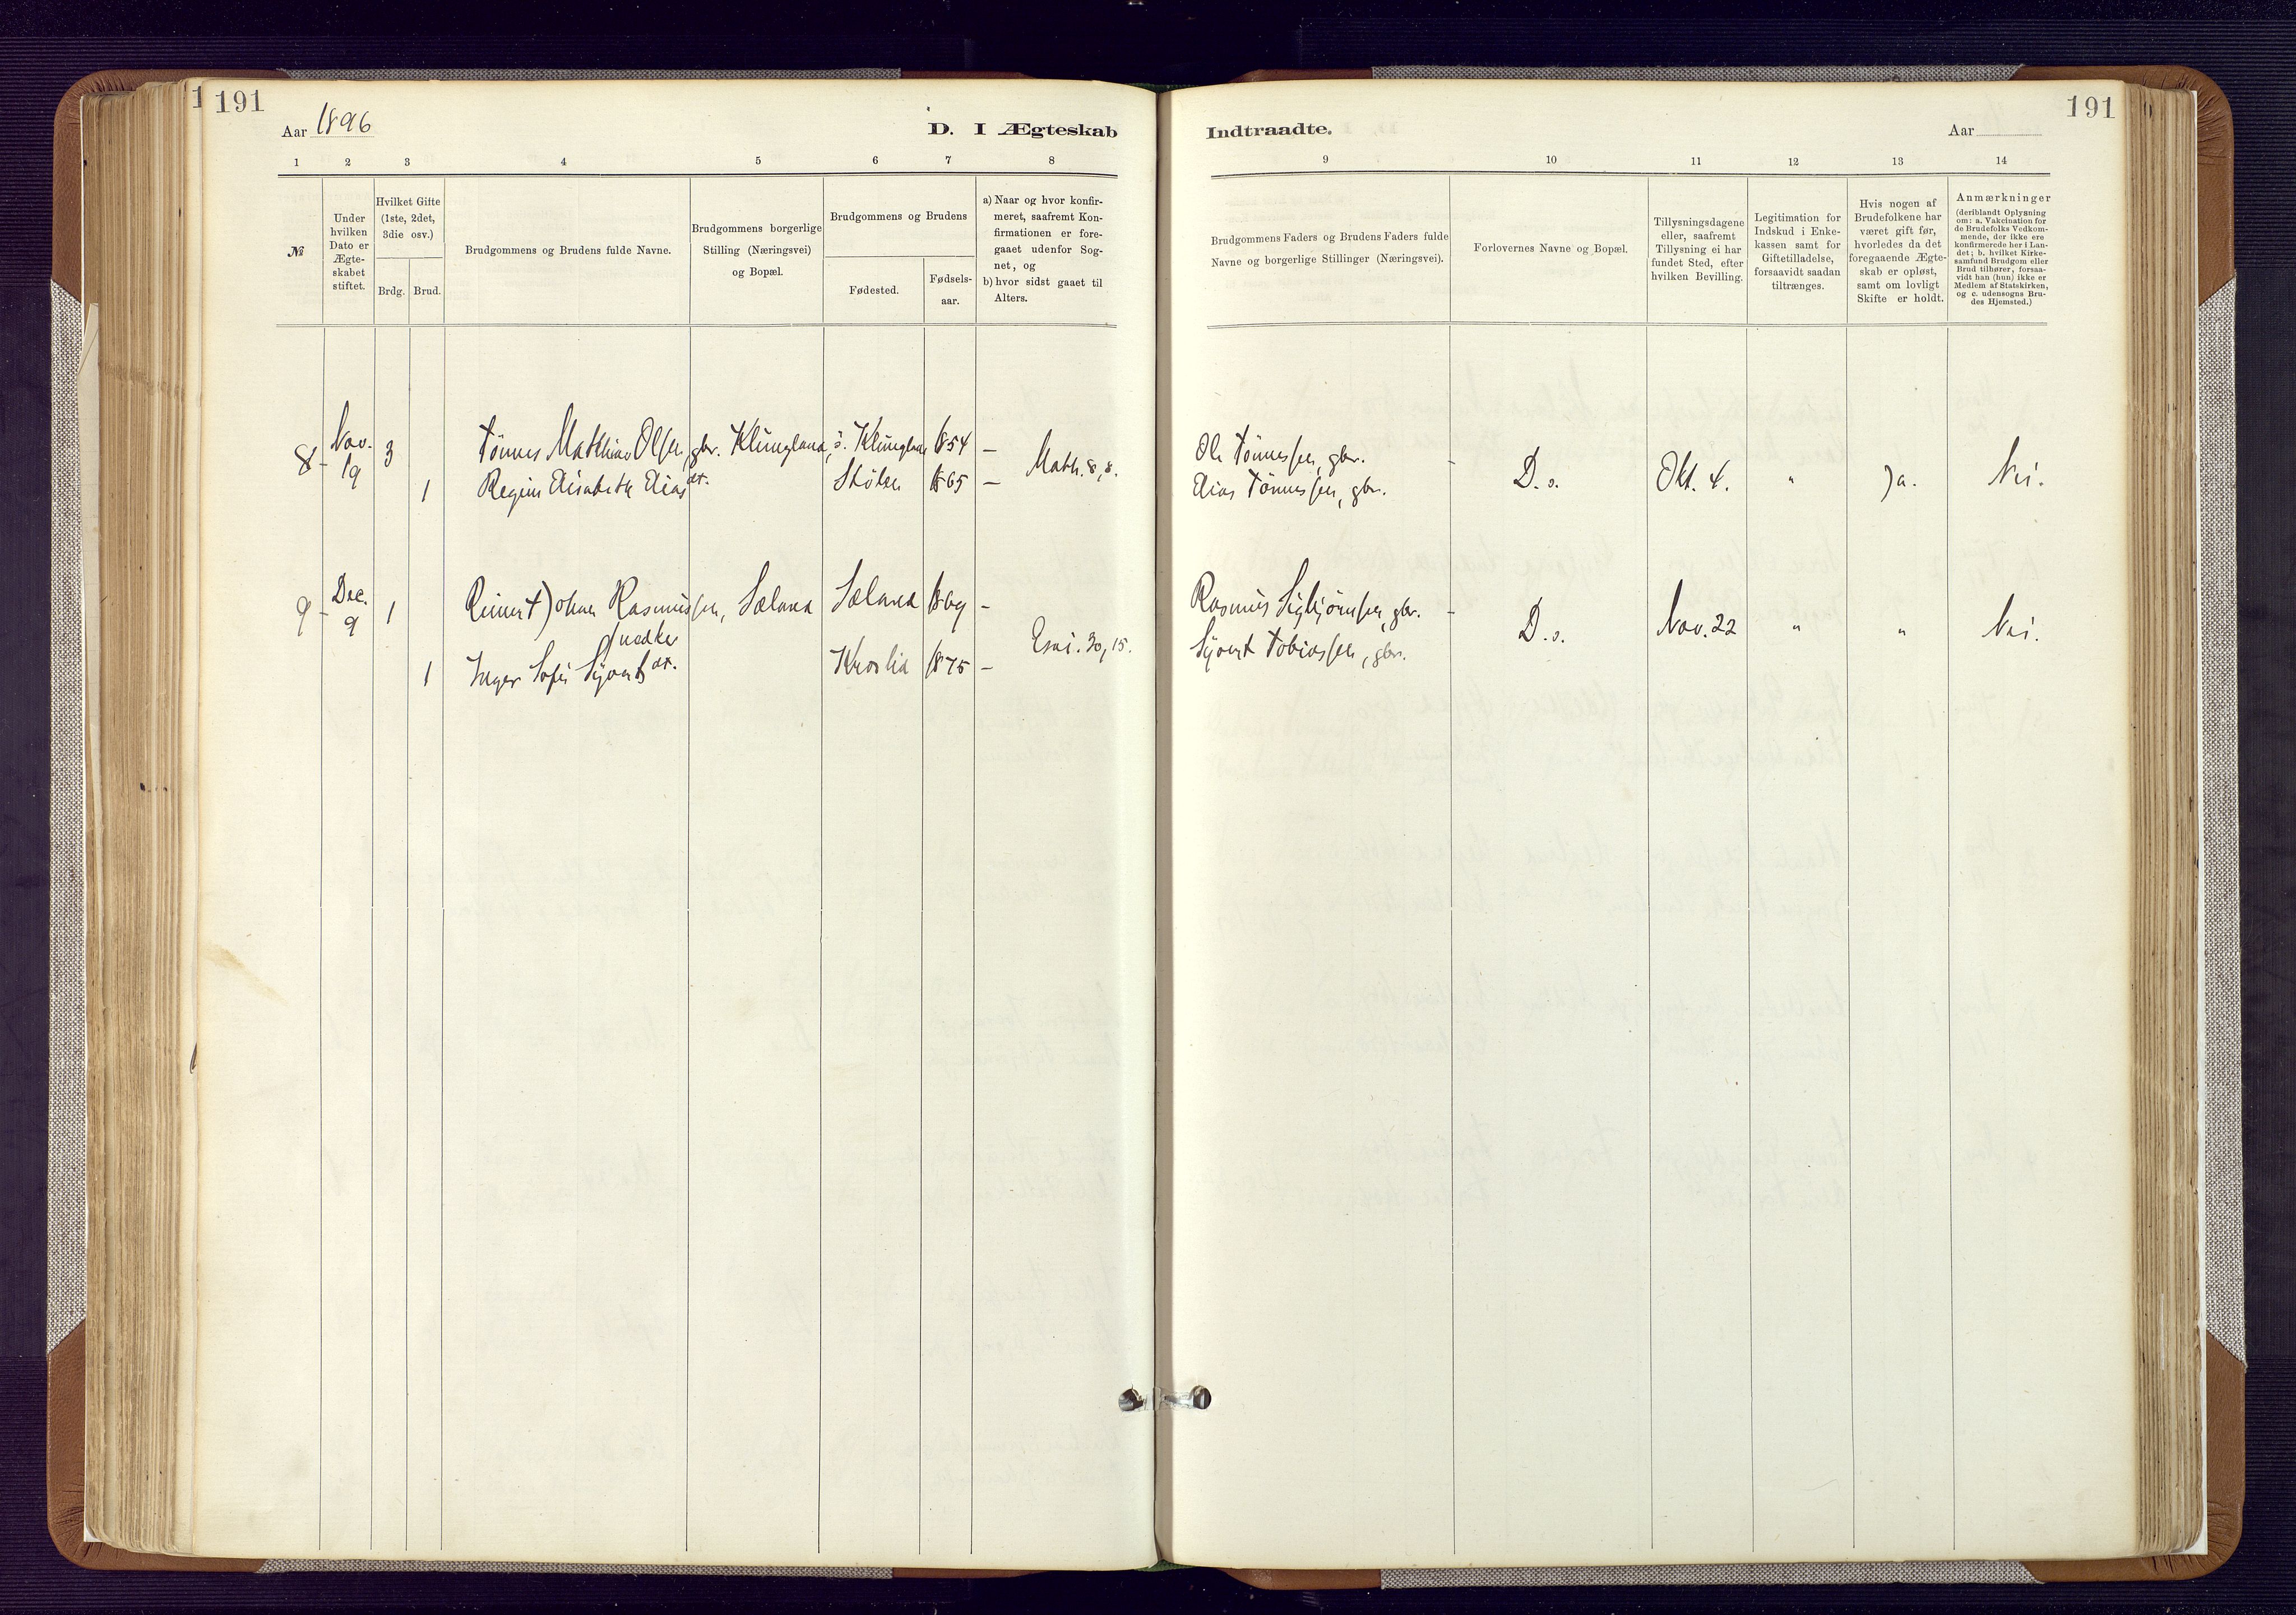 191
Aar 1896
D. I Ægteskab
1 2 3 4 5 6 7 8
№
Under hvilken Dato er Ægte-skabet stiftet.
Hvilket Gifte (1ste, 2det, 3die osv.)
Brdg. Brud.
Brudgommens og Brudens fulde Navne.
Brudgommens borgerlige Stilling (Næringsvei) og Bopæl.
Brudgommens og Brudens
Fødested.
Fødsels-aar.
a) Naar og hvor konfir-meret, saafremt Kon-firmationen er fore-gaaet udenfor Sog-net, og
b) hvor sidst gaaet til Alters.
8 Nov. 19 3 Tønnes Mathias Olsen, gbr. Klungland, s. Klungland 1854 –
1 Regine Elisabeth Elias dt. Stølen 1865 – Math. 8, 8.
9 Dec. 9 1 Reinert Johan Rasmussen, Sæland Sæland 1869 –
Esai. 30, 15.
1 Inger Sofie Syverts dt. 1875 –
Indtraadte.
Aar
191
9 10 11 12 13 14
Brudgommens Faders og Brudens Faders fulde Navne og borgerlige Stillinger (Næringsvei).
Forlovernes Navne og Bopæl.
Tillysningsdagene eller, saafremt Tillysning ei har fundet Sted, efter hvilken Bevilling.
Legitimation for Indskud i Enke-kassen samt for Giftetilladelse, forsaavidt saadan tiltrænges.
Hvis nogen af Brudefolkene har været gift før, hvorledes da det foregaaende Ægte-skab er opløst, samt om lovligt Skifte er holdt.
Anmærkninger (deriblandt Oplysning om: a. Vakcination for de Brudefolks Vedkom-mende, der ikke ere konfirmerede her i Lan-det; b. hvilket Kirke-samfund Brudgom eller Brud tilhører, forsaa-vidt han (hun) ikke er Medlem af Statskirken, og c. udensogns Bru-des Hjemsted.)
Ole Tønnessen, gbr.
Elias Tønnessen, gbr. D. o. Okt. 4. " Ja. Nei.
Rasmus Sigbjørnsen, gbr.
Syvert Tobiassen, gbr. D. o. Nov. 22 " " Nei.